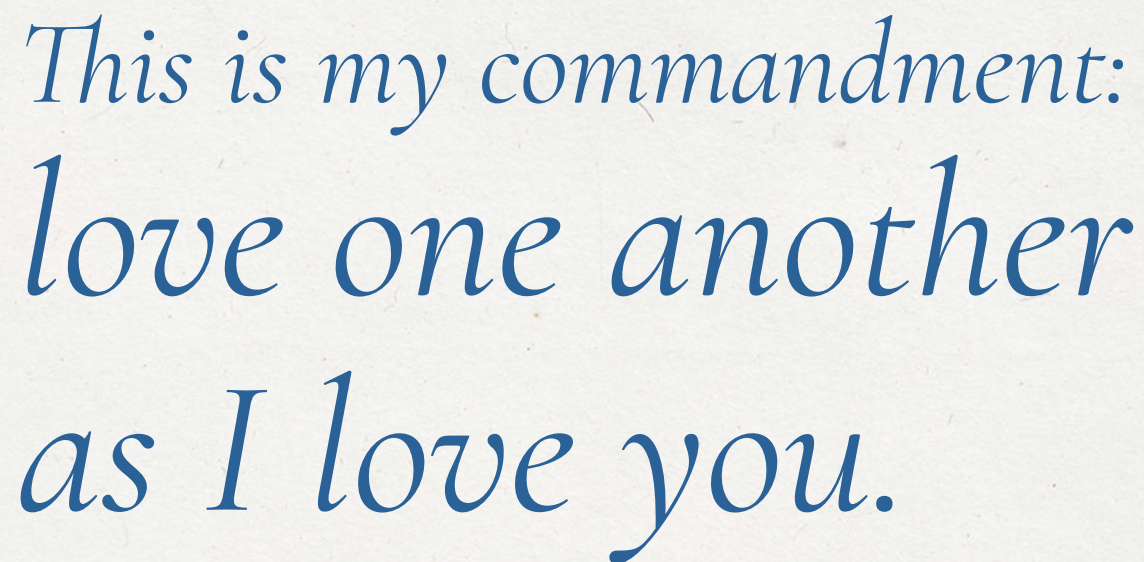 This is my commandment:
love one another
as I love you.